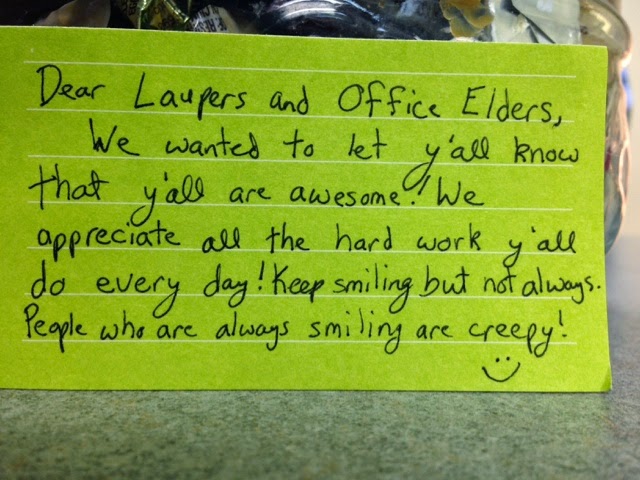 Dear Laupers and Office Elders,
We wanted to let y'all know
that y'all are awesome! We
appreciate all the hard work y'all
do every day! Keep smiling but not always.
People who are always smiling are creepy!